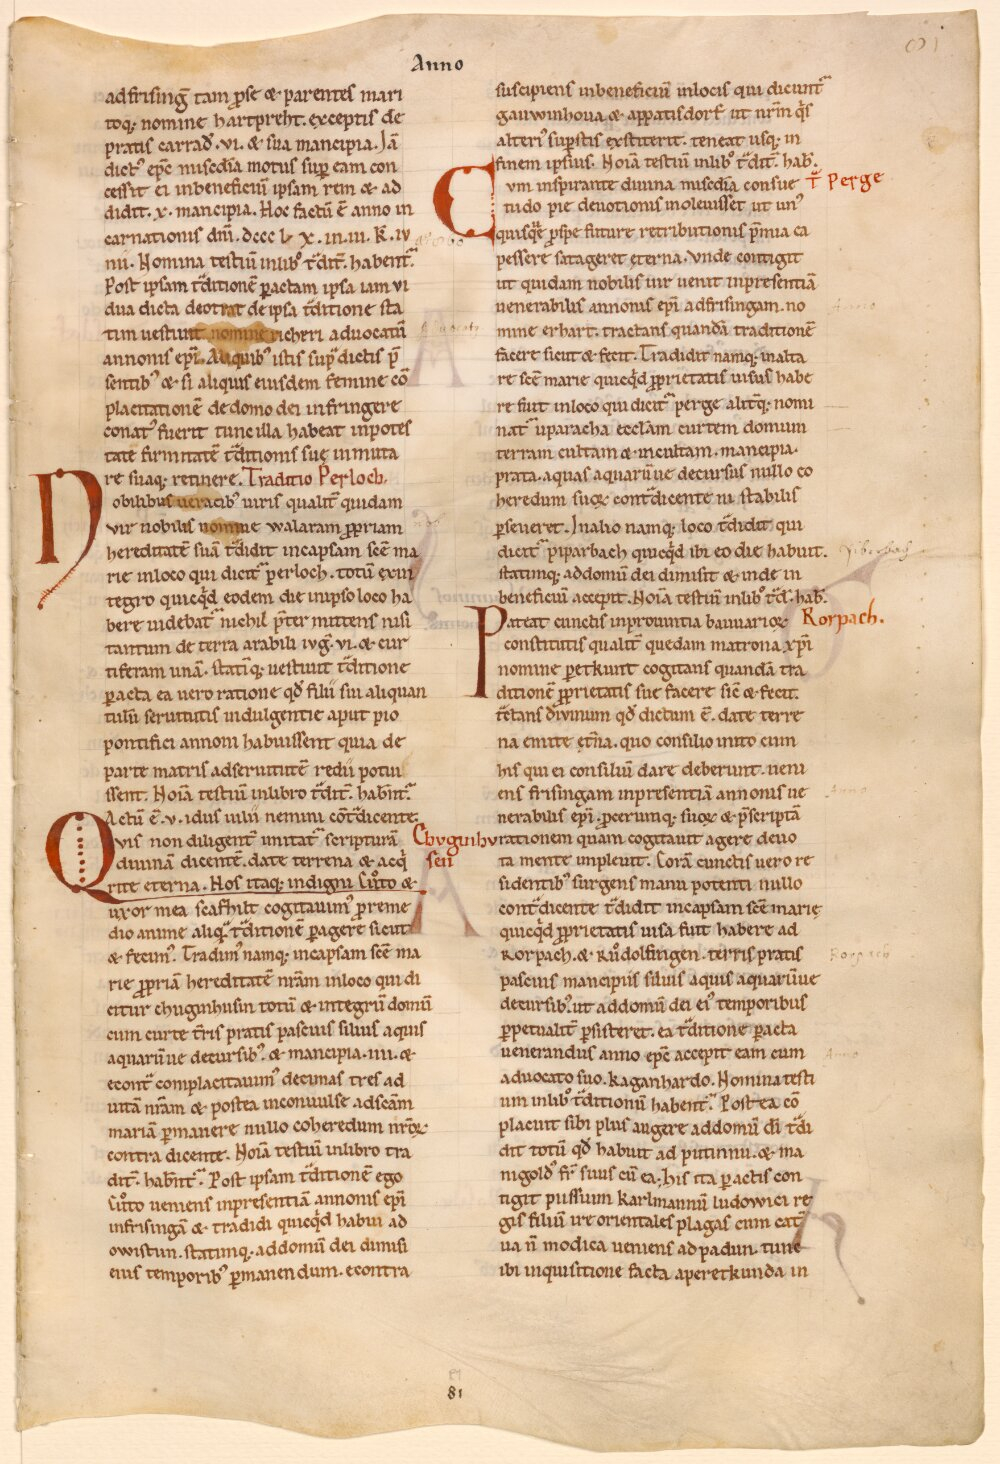 Anno
adfrising̅ tam ꝑse & parentes mari
toq; nomine hartpreht. exceptis de
pratis carrad̅. vi. & sua mancipia. Ia̅
dict᷒ ep̅c mis̅c̅dia motus sup̅ eam con
cessit ei inbeneficiu̅ ipsam rem & ad
didit. x. mancipia. Hoc factu̅ e̅ anno in
carnationis dn̅i. dccc l x. in. iii. k̅. iv
nii. Nomina testiu̅ inlib᷒ t̅dit̅. habent᷑.
Post ipsam t̅ditione̅ ꝑactam ipsa iam vi
dua dicta deotrat de ipsa t̅ditione sta
tim vestivit nomine richeri advocatu̅
annonis ep̅i. Aliquib᷒ istis sup̅ dictis p̅
sentib᷒ & si aliquis eiusdem femine co̅
placitatione̅ dedomo dei infringere
conat᷒ fuerit tunc illa habeat inpotes
tate firmitate̅ t̅ditionis sue inmuta
re suaq; retinere. Traditio Perloch.
Nobilibus veracib᷒ viris qualit̅ quidam
vir nobilis nomine walaram ꝓpriam
hereditate̅ sua̅ t̅didit incapsam sce̅ ma
rie inloco qui dicit᷑ perloch. totu̅ exin
tegro quicq̅d eodem die inipso loco ha
bere videbat᷑ nichil p̅ter mittens nisi
tantum de terra arabili ivg̅. vi. & cur
tiferam una̅. statimq; vestivit t̅ditione
ꝑacta ea vero ratione qd̅ filii sui aliquan
tulu̅ servitutis indulgentie aput pio
pontifici annoni habuissent quia de
parte matris adservitute̅ redii potui
ssent. Noi̅a testiu̅ inlibro t̅dit̅. habnt᷑.
Actu̅ e̅. v. idus iulii nemini co̅t̅dicente.
Quis non diligent̅ imitat᷑ scriptura̅
divina̅ dicente̅. date terrena & acq̅
rite eterna. Hos itaq; indigni Cu̅to &
uxor mea scafhilt cogitavim᷒ ꝓreme
dio anime aliq̅ t̅ditione̅ ꝑagere sicut
& fecim᷒. Tradim᷒ namq; incapsam sce̅ ma
rie ꝓpria̅ hereditate̅ nr̅am inloco qui di
citur chuginhusin totu̅ & integru̅ domu̅
cum curte t̅ris pratis pascuis silvis aquis
aquaru̅ve decursib᷒. & mancipia. iiii. &
econt̅ complacitavim᷒ decimas tres ad
vita̅ nr̅am & postea inconvulse adsca̅m
maria̅ ꝑmanere nullo coheredum nr̅oꝝ
contra dicente. Noi̅a testiu̅ inlibro tra
dit̅. habnt᷑. Post ipsam t̅ditione̅ ego
Cu̅to veniens inpresentia̅ annonis ep̅i
infrisinga̅ & tradidi quicq̅d habui ad
owistun. statimq;. addomu̅ dei dimisi
eius temporib᷒ ꝑmanendum. econtra
Chuginhu
sen
suscipiens inbeneficiu̅ inlocis qui dicunt᷑
gauwinhova & appatisdorf ut nr̅m q̅s
alteri᷒ suꝑstis exstiterit. teneat usq; in
finem ipsius. Noi̅a testiu̅ inlib᷒ t̅dit̅. hab̅.
Cvm inspirante divina mis̅c̅dia consue
tudo pie devotionis inolevisset ut un᷒
quisq̅e ꝓspe future retributionis p̅mia ca
pessere satageret eterna. Vnde contigit
ut quidam nobilis vir venit inpresentia̅
venerabilis annonis ep̅i adfrisingam. no
mine erhart. tractans quanda̅ traditione̅
facere sicut & fecit. Tradidit namq; inalta
re sce̅ marie quicq̅d ꝓprietatis visus habe
re fuit inloco qui dicit᷑ perge alitq̅; nomi
nat᷑ uparacha eccl̅am curtem domum
terram cultam & incultam. mancipia.
prata. aquas aquaru̅ve decursus nullo co
heredum suoꝝ cont̅dicente ni stabilis
ꝑseveret. Inalio namq; loco t̅didit qui
dicit᷑ piparbach quicq̅d ibi eo die habuit.
statimq; addomu̅ dei dimisit & inde in
beneficiu̅ accepit. Noi̅a testiu̅ inlib᷒ t̅d̅. hab̅.
Pateat cunctis inprovintia bauvarioꝝ
constitutis qualit̅ quedam matrona xp̅i
nomine petkunt cogitans quanda̅ tra
ditione̅ ꝓprietatis sue facere sic̅ & fecit.
t̅ctans divinum qd̅ dictum e̅. date terre
na emite et̅na. quo consilio inito cum
his qui ei consiliu̅ dare deberunt. veni
ens frisingam inpresentia̅ annonis ve
nerabilis ep̅i. ꝓcerumq; suoꝝ & p̅scripta̅
rationem quam cogitavit agere devo
ta mente implevit. Cora̅ cunctis vero re
sidentib᷒ surgens manu potenti nullo
cont̅dicente t̅didit incapsam sce̅ marie
quicq̅d ꝓprietatis visa fuit habere ad
Rorpach. & Ru̅dolfingen. terris pratis
pascuis mancipiis silvis aquis aquaru̅ve
decursib᷒. ut addomu̅ dei ei᷒ temporibus
ꝑpetualit̅ ꝑsisteret. ea t̅ditione ꝑacta
venerandus anno ep̅c accepit eam cum
advocato suo. kaganhardo. Nomina testi
um inlib᷒ t̅ditionu̅ habent᷑. Post ea co̅
placuit sibi plus augere addomu̅ di̅ t̅di
dit totu̅ qd̅ habuit ad pitinnii. & ma
nigold᷒ fr̅ suus cu̅ ea. his ita ꝑactis con
tigit piissium karlmannu̅ ludowici re
gis filiu̅ ire orientales plagas cum cat᷑
va n̅ modica veniens adpadun. tunc
ibi inquisitione facta aperetkunda in
t̅ Perge
Rorpach.
Anno
Biberbach
Anno
Rorpach
Anno
81